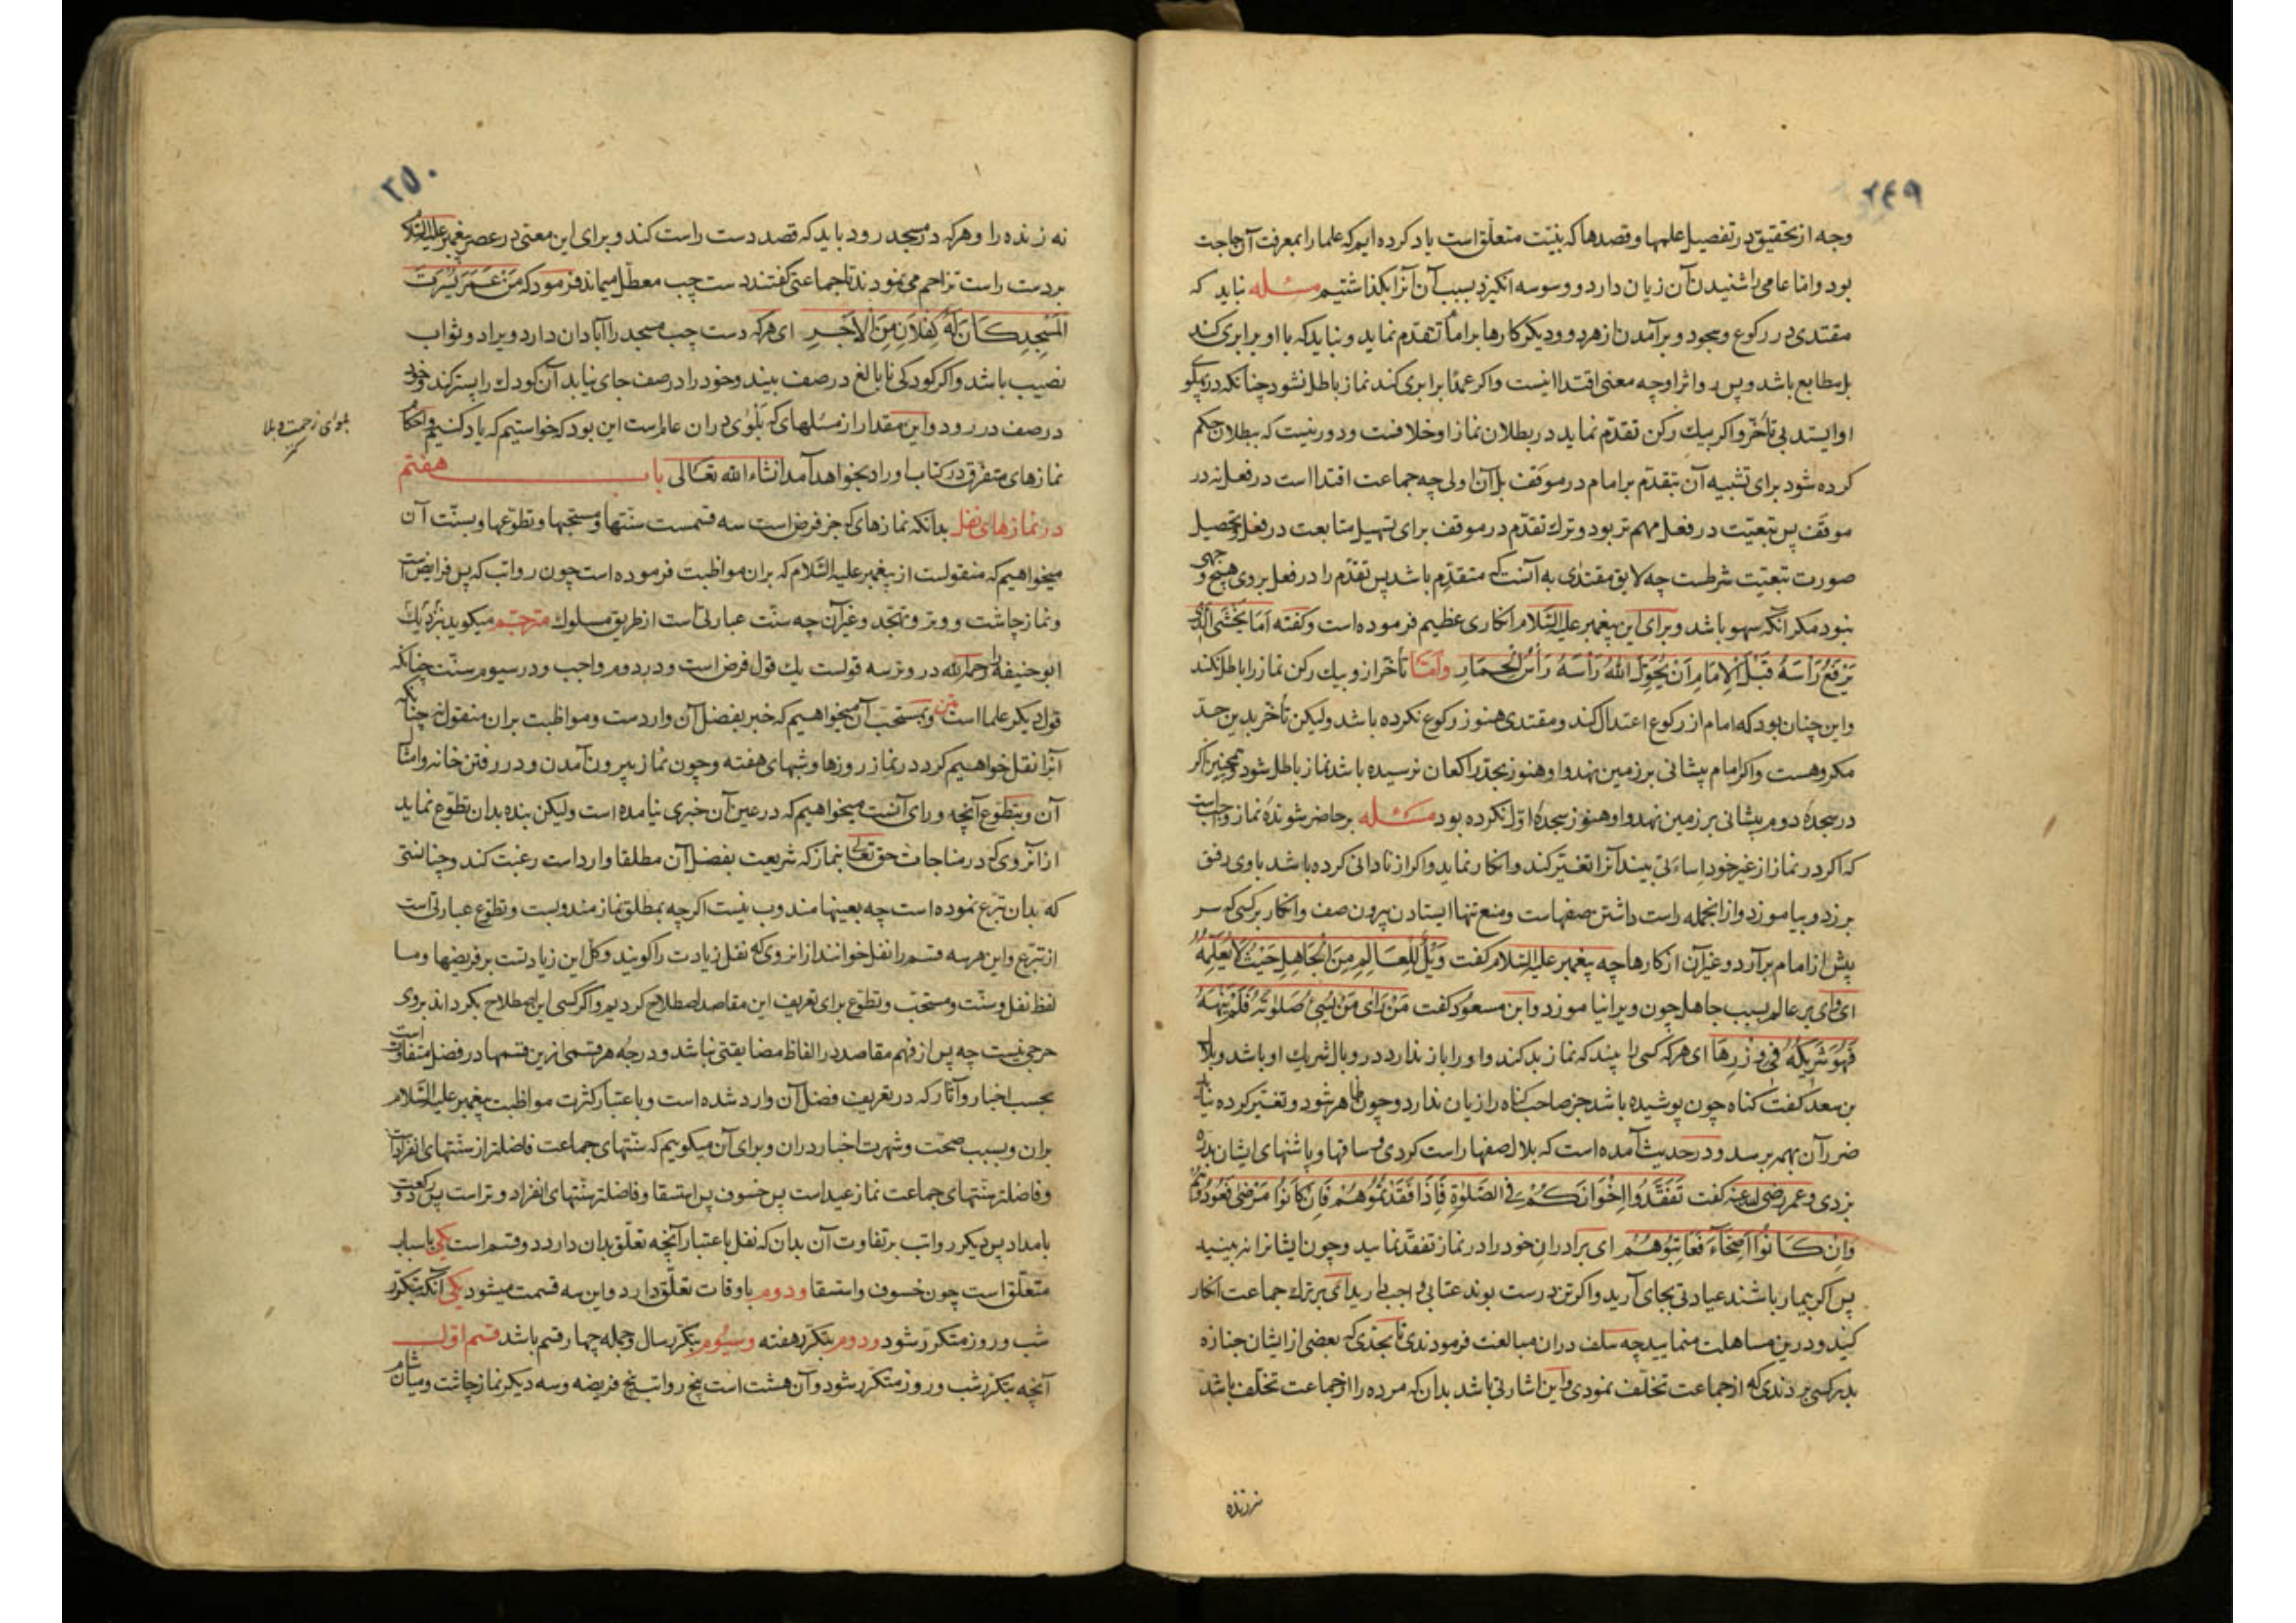 ٢٤٩
وجه از تحقیق در تفصیل علمها و قصدها که بنیّت متعلّق است یاد کرده ایم که علما را بمعرفت آن حاجت
بود و امّا عامی را شنیدن آن زیان دارد و وسوسه انگیزد بسبب آن آنرا بگذاشتیم مسئله نباید که
مقتدی در رکوع و سجود و برآمدن از هر دو و دیگر کارها بر امام تقدّم نماید و نباید که با او برابری کند
بل مطابع باشد و پس رو اثر او چه معنی اقتدا اینست و اکر عمدًا برابری کند نماز باطل نشود چنانکه در پهلو
او ایستد بی تأخّر و اکر بیك رکن تقدّم نماید در بطلان نماز او خلافست و دور نیست که ببطلان حکم
کرده شود برای تشبیه آن بتقدّم بر امام در موقف بل آن اولی چه جماعت اقتدا است در فعل نه در
موقف پس تبعیّت در فعل مهم تر بود و ترك تقدّم در موقف برای تسهیل متابعت در فعل و تحصیل
صورت تبعیّت شرطست چه لایق مقتدٰی به آنست که متقدّم باشد پس تقدّم را در فعل بر وی هیچ وجهی
نبود مکر آنکه سهو باشد و برای این پیغمبر علیه السّلام انکاری عظیم فرموده است و کفته اَمَا یَخْشَی الَّذی
یَرْفَعُ رَأْسَهُ قَبْلَ الْاِمَامِ اَنْ یُحَوِّلَ اللّٰهُ رَأْسَهُ رَأْسَ الْحِمَارِ وامّا تأخّر ازو بیك رکن نماز را باطل نکند
و این چنان بود که امام از رکوع اعتدال کند و مقتدی هنوز رکوع نکرده باشد ولیکن تأخّر بدین حدّ
مکروهست و اکر امام پیشانی بر زمین نهد و او هنوز بحدّ راکعان نرسیده باشد نماز باطل شود و همچنین اکر
در سجدهٔ دوم پیشانی بر زمین نهد و او هنوز سجدهٔ اوّل نکرده بود مسئله بر حاضر شوندهٔ نماز واجب است
که اکر در نماز از غیر خود اساءتی بیند آنرا تغییر کند و انکار نماید و اکر از نادانی کرده باشد با وی رفق
برزد و بیاموزد و از انجمله راست داشتن صفهاست و منع تنها ایستادن بیرون صف و انکار بر کسی که سر
پیش از امام برآرد و غیر آن از کارها چه پیغمبر علیه السّلام کفت وَیْلٌ لِلْعَالِمِ مِنَ الْجَاهِلِ حَیْثُ لَا یُعَلِّمُهُ
ای وای بر عالم بسبب جاهل چون ویرا نیاموزد و ابن مسعود کفت مَنْ رَاٰی مَنْ یُسِیُٔ صَلٰوتَهُ فَلَمْ یَنْهَهُ
فَهُوَ شَرِیکُهُ فی وِزْرِهَا ای هر که کسی را بیند که نماز بد کند و او را باز ندارد در وبال شریك او باشد و بلال
بن سعد کفت کناه چون پوشیده باشد جز صاحب کناه را زیان ندارد و چون ظاهر شود و تغییر کرده نیاید
ضرر آن بهمه برسد و در حدیث آمده است که بلال صفها راست کردی و ساقها و پاشنهای ایشان بدره
بزدی و عمر رضی الله عنه کفت تَفَقَّدُوا اِخْوَانَکُمْ فی الصَّلٰوةِ فَاِذَا فَقَدْتُمُوهُمْ فَاِنْ کَانُوا مَرْضٰی فَعُودُوهُمْ
وَاِنْ کَانُوا اَصِحَّآءَ فَعَاتِبُوهُمْ ای برادران خود را در نماز تفقّد نمایید و چون ایشانرا نه بینید
پس اکر بیمار باشند عیادتی بجای آرید و اکر تن درست بوند عتابی واجب دارید ای بر ترك جماعت انکار
کنید و درین مساهلت منمایید چه سلف دران مبالغت فرمودندی تا بحدّی که بعضی از ایشان جنازه
بدر کسی بردندی که از جماعت تخلّف نمودی و این اشارتی باشد بدان که مرده را از جماعت تخلّف باشد
نه زنده
٢٥٠
نه زنده را و هر که در مسجد رود باید که قصد دست راست کند و برای این معنی در عصر پیغمبر علیه السّلام
بر دست راست تزاحم می نمودند تا جماعتی کفتند دست چپ معطّل میماند فرمود که مَنْ عَمَّرَ یُسْرَةَ
الْمَسْجِدِ کَانَ لَهُ کِفْلَانِ مِنَ الْاَجْرِ ای هر که دست چپ مسجد را آبادان دارد ویرا دو ثواب
نصیب باشد و اکر کودکی نابالغ در صف بیند و خود را در صف جای نیابد آن کودك را پستر کند و خود
در صف در رود و این مقدار از مسئلهای که بَلْوٰی دران عام است این بود که خواستیم که یاد کنیم و احکام
بلوای زحمت و بلا
نمازهای متفرّق در کتاب اوراد بخواهد آمد انشاء الله تعالی باب هفتم
در نمازهای نفل بدانکه نمازهای که جز فرض است سه قسمست سنّتها و مستحبّها و تطوّعها و بسنّت آن
میخواهیم که منقولست از پیغمبر علیه السّلام که بران مواظبت فرموده است چون رواتب که پس فرایض است
و نماز چاشت و وتر و تهجّد و غیر آن چه سنّت عبارتی است از طریق مسلوك مترجم میکوید نزدیك
ابو حنیفه را رحمه الله در وتر سه قولست یك قول فرض است و در دوم واجب و در سیوم سنّت چنانکه
قول دیکر علما است متن و بمستحب آن میخواهیم که خبر بفضل آن واردست و مواظبت بران منقول نه چنانکه
آنرا نقل خواهیم کرد در نماز روزها و شبهای هفته و چون نماز بیرون آمدن و در رفتن خانه و امثال
آن و بتطوّع آنچه ورای آنست میخواهیم که در عین آن خبری نیامده است ولیکن بنده بدان تطوّع نماید
از آنروی که در مناجات حق تعالی بنماز که شریعت بفضل آن مطلقا وارد است رغبت کند و چنانستی
که بدان تبرّع نموده است چه بعینها مندوب نیست اکرچه بمطلق نماز مندوبست و تطوّع عبارتی است
از تبرّع و این هر سه قسم را نفل خوانند از انروی که نفل زیادت را کویند و کل این زیادتست بر فریضها و ما
لفظ نفل و سنّت و مستحبّ و تطوّع برای تعریف این مقاصد اصطلاح کردیم و اکر کسی این اصطلاح بکرداند بر وی
حرجی نیست چه پس از فهم مقاصد در الفاظ مضایقتی نباشد و درجهٔ هر قسمی ازین قسمها در فضل متفاوت است
بحسب اخبار و آثار که در تعریف فضل آن وارد شده است و باعتبار کثرت مواظبت پیغمبر علیه السّلام
بران و بسبب صحّت و شهرت اخبار دران و برای آن میکوییم که سنّتهای جماعت فاضلتر از سنّتهای انفراد است
و فاضلتر سنّتهای جماعت نماز عید است پس خسوف پس استسقا و فاضلتر سنّتهای انفراد وتر است پس دو رکعت
بامداد پس دیکر رواتب بر تفاوت آن بدان که نفل باعتبار آنچه تعلّق بدان دارد دو قسم است یکی باسباب
متعلّق است چون خسوف و استسقا و دوم باوقات تعلّق دارد و این سه قسمت میشود یکی آنکه بتکرّر
شب و روز متکرّر شود و دوم بتکرّر هفته و سیوم بتکرّر سال و جمله چهار قسم باشد قسم اوّل
آنچه بتکرّر شب و روز متکرّر شود و آن هشت است پنج رواتب پنج فریضه و سه دیکر نماز چاشت و میان شام